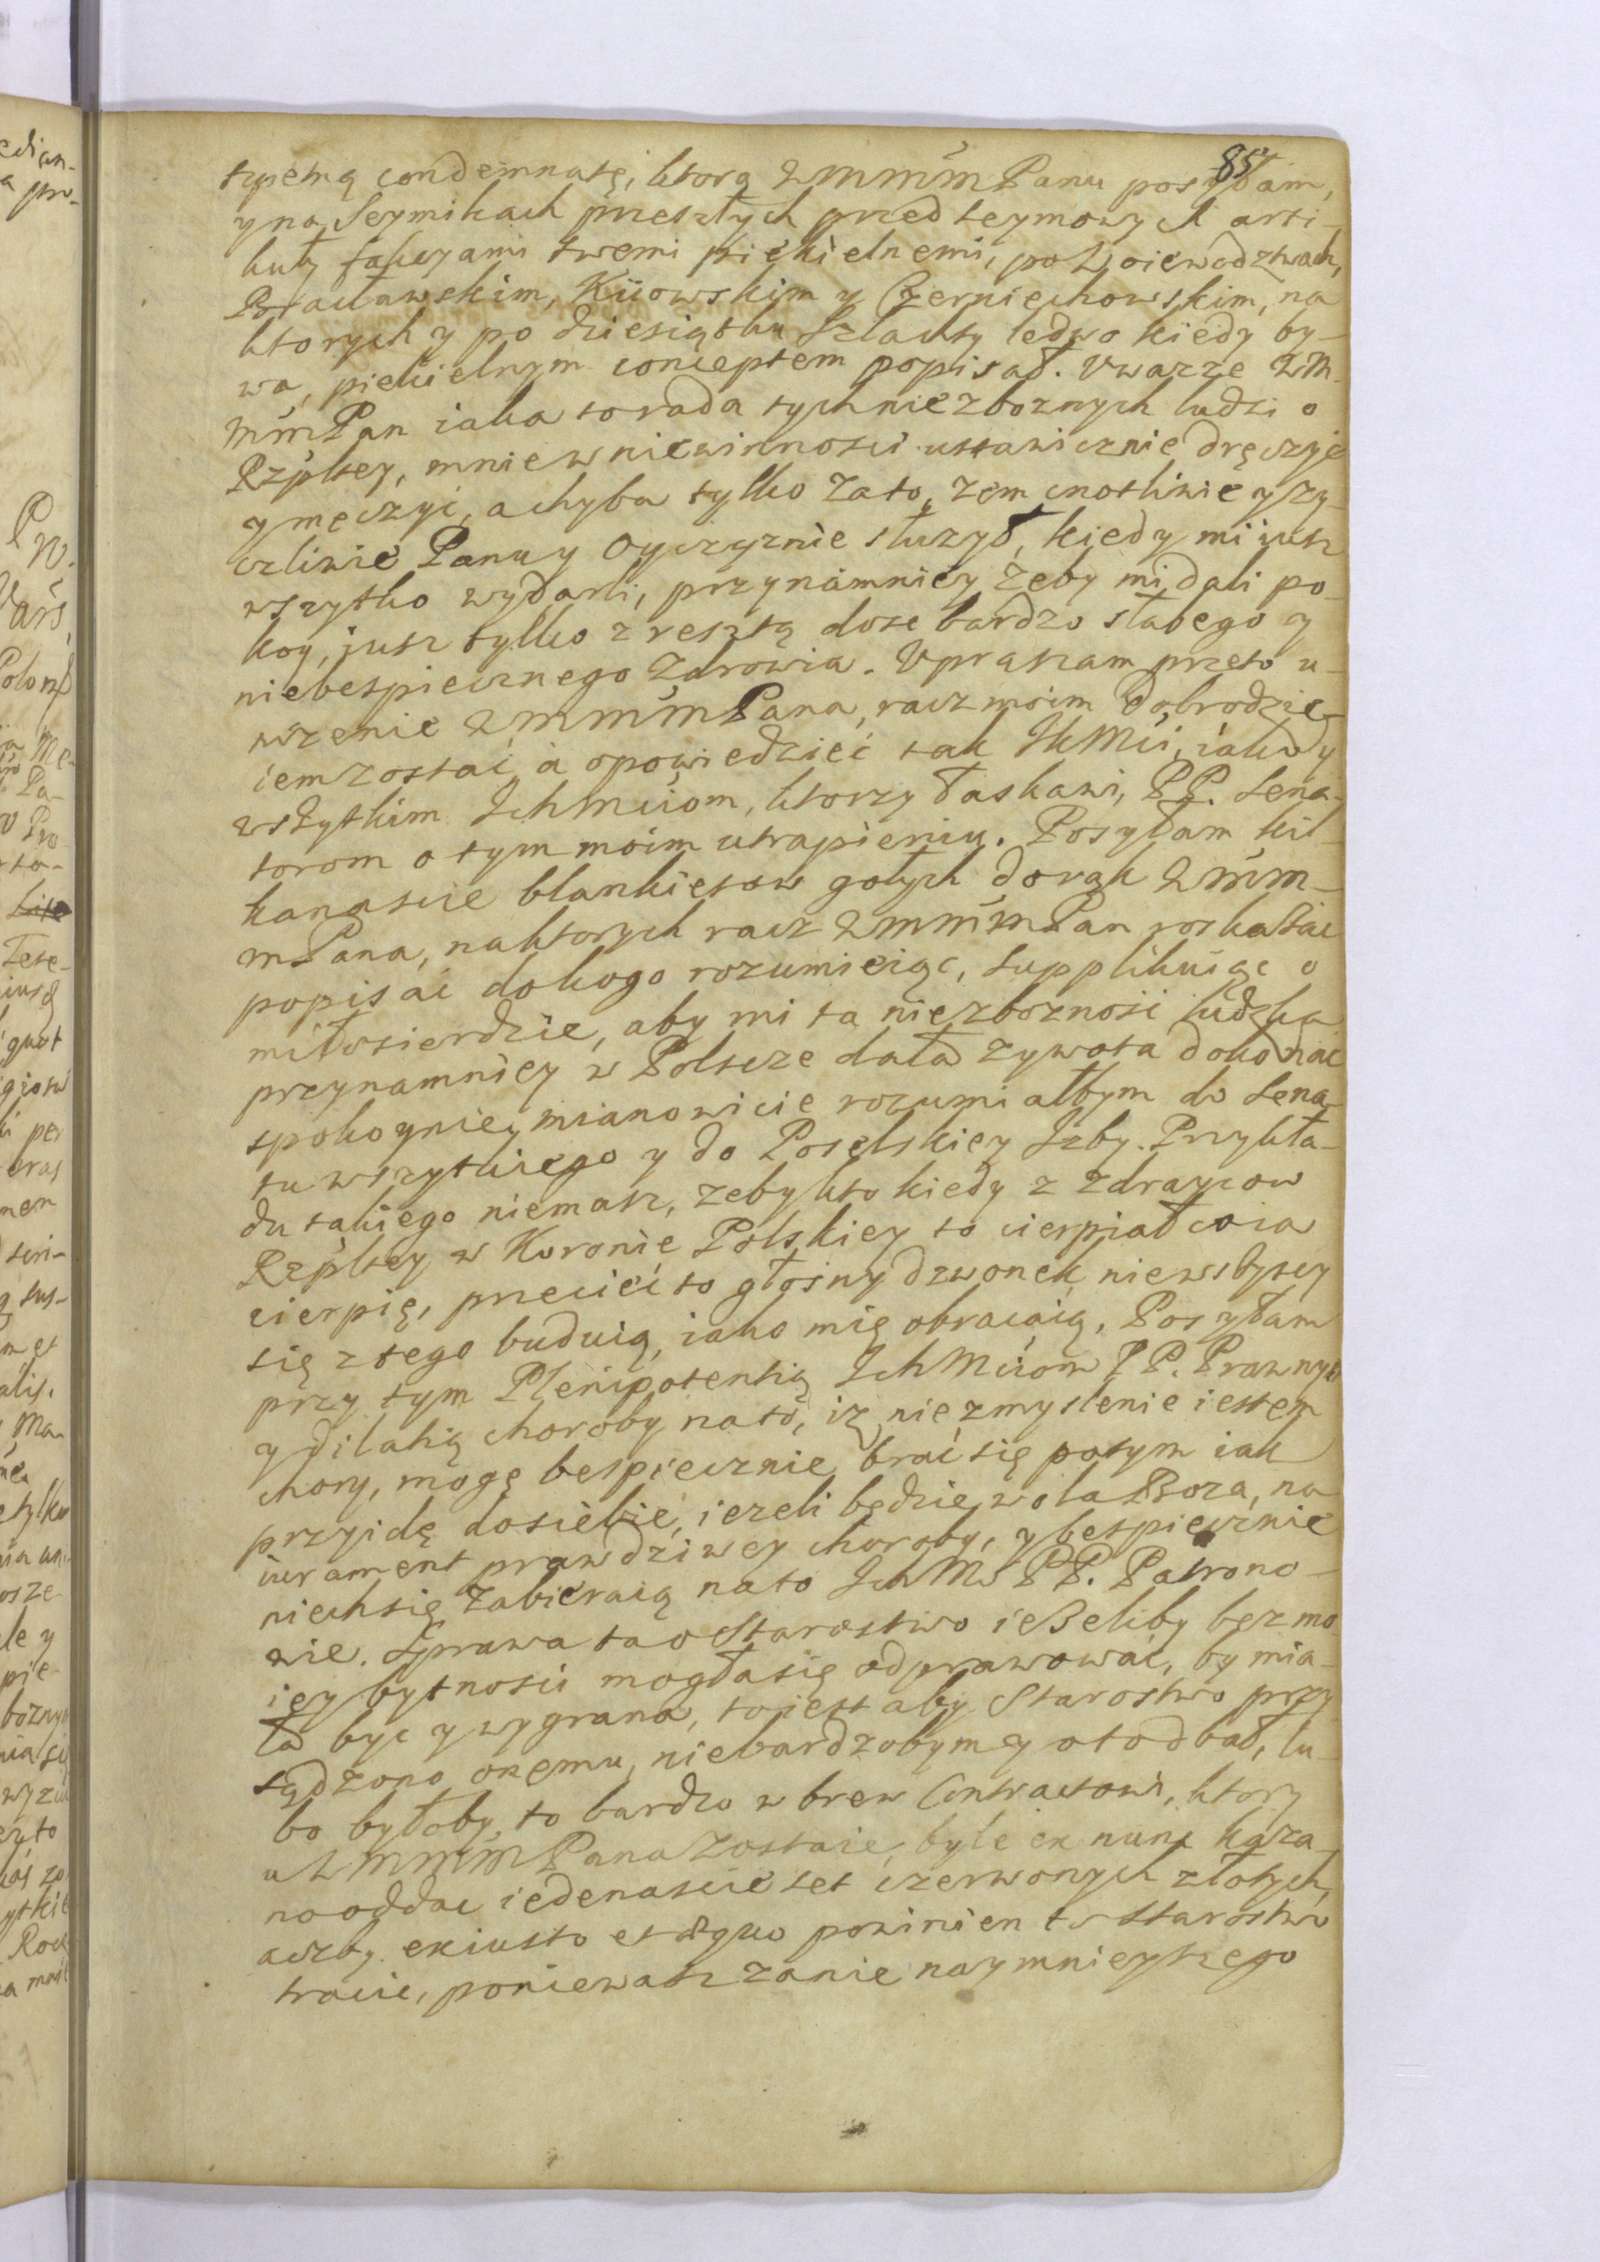 85
supełną condemnatę, ktorą WMMMPanu posyłam,
y na Seymikach przeszłych przed seymowych arti-
kuły fakcyami swemi piekielnemi, po Woiewodztwach,
Bracławskim, Kiiowskim y Czerniechowskim, na
ktorych y po dziesiątku Szlachty ledwo kiedy by-
wa, piekielnym conceptem popisał. Uwazze WM-
MMPan iaka to rada tych niezboznych ludzi o
Rzpltey, mnie w niewinnosci ustawicznie dręczyć
y męczyć, a chyba tylko za to, zem cnotliwie y zy-
czliwie Panu y Oyczyznie słuzył, kiedy mi iusz
wszytko wydarli, przynamniey zeby mi dali po-
koy, iusz tylko z resztą dosc bardzo słabego y
niebespiecznego zdrowia. Upraszam przeto u-
nizenie WMMMPana, racz moim dobrodzie-
iem zostać, á opowiedzieć tak JKMci, iako y
wszytkim IchMciom, ktorzy łaskawi, PP. Sena-
torom o tym moim utrapieniu. Posyłam kil-
kanascie blankietow gołych do rąk WMM-
MPana, na ktorych racz WMMMPan roskazac
popisać do kogo rozumieiąc, supplikuiąc o
miłosierdzie, aby mi ta niezboznosć ludzka
przynamniey w Polszcze dała zywota dokonac
spokoyniey mianowicie rozumiałbym do Sena-
tu wszytkiego y do Poselskiey Izby. Przykła-
du takiego niemasz, zeby kto kiedy z zdraycow
Rzpltey w Koronie Polskiey to cierpiał co ia
cierpię, przecieć to głosny dzwonek, nie wszyscy
się z tego buduią, iako mię obracaią. Posyłam
przy tym Plenipotentią IchMciom PP. Prawnym
y dilatią choroby na to, iz nie zmyslenie iestem
chory, mogę bespiecznie brać się potym iak
przyidę do siebie, iezeli będzie wola Boza, na
iurament prawdziwey choroby, y bespiecznie
niech się zabieraią na to IchMs PP. Patrono-
wie. Sprawa ta o Starostwo ieżeliby bez mo-
iey bytnosci mogła się odprawować, by mia-
ła byc y wygrana, to iest aby Starostwo przy-
sądzono onemu, niebardzobym y o to dbał, lu-
bo byłoby to bardzo w brew Contractowi, ktory
u WMMMPana zostaie, byle ex nunc kaza-
no oddac iedenascie set czerwonych złotych,
aczby ex iusto et æquo powinien to Starostwo
tracic, poniewasz zanie naymnieyszego